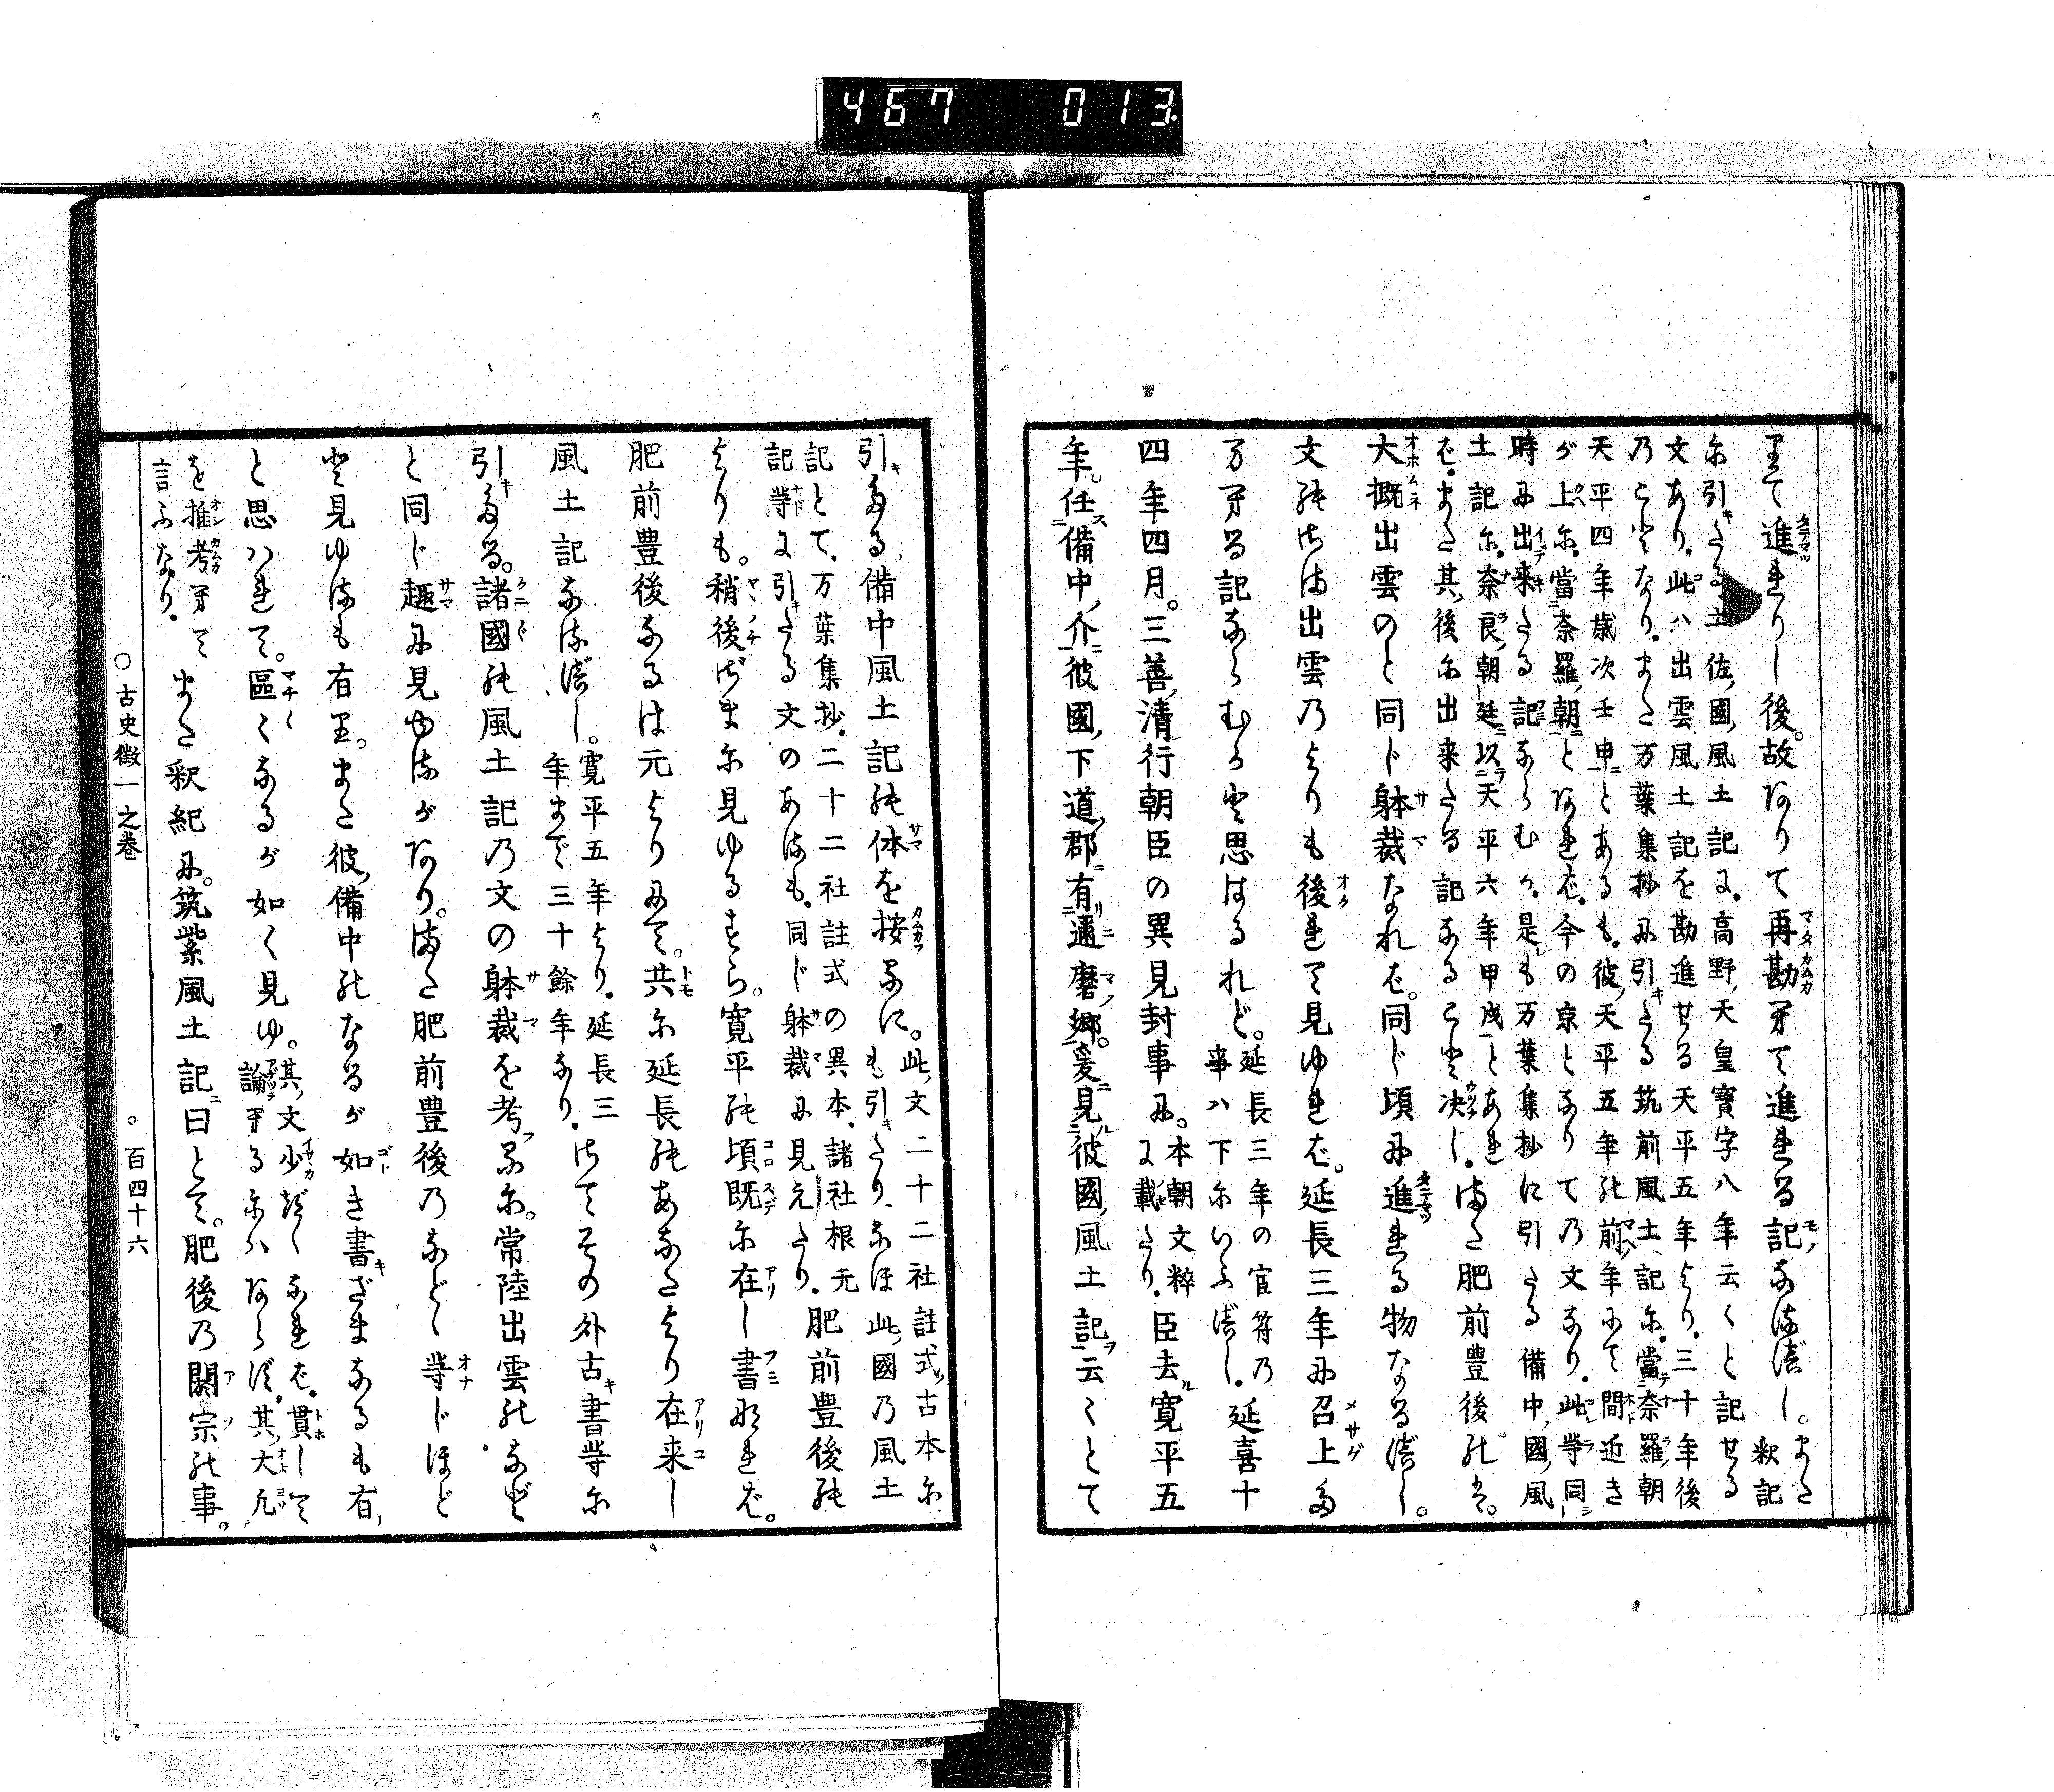 467 013
りて進れりし後。故ありて再勘へて進れる記なるべし。また
釈記
に引たる土佐國風土記に。高野天皇寶字八年云々と記せる
文あり。此ハ出雲風土記を勘進せる天平五年より。三十年後
のことなり。また万葉集抄に引たる筑前風土記に。當奈羅朝
天平四年歳次壬申とあるも。彼天平五年の前年にて間近き
が上に。當奈羅朝とあれば。今の京となりての文なり。此等同
時に出来たる記ならむか。是も万葉集抄に引たる備中國風
土記に。奈良朝廷以天平六年甲戌とあれ
ば。また其後に出来たる記なること决し。また肥前豊後のは。
大概出雲のと同じ躰裁なれば。同じ頃に進れる物なるべし。
文のさま出雲のよりも後れて見ゆれば。延長三年に召上た
万へる記ならむかと思はるれど。延長三年の官符の
事ハ下にいふべし。延喜十
四年四月。三善清行朝臣の異見封事に。本朝文粹
に載たり。臣去寛平五
年。任備中介彼國下道郡有邇磨郷。爰見彼國風土記云々とて
引たる備中風土記の体を按ふに。此文二十二社註式古本に
も引たり。なほ此國の風土
記とて。万葉集抄。二十二社註式の異本、諸社根元
記等に引たる文のあるも。同じ躰裁に見えたり。肥前豊後の
よりも。稍後ざまに見ゆるすら。寛平の頃既に在し書なれば。
肥前豊後なるは元よりにて。共に延長のあなたより在来し
風土記なるべし。寛平五年より。延長三
年まで三十餘年なり。さてその外古書等に
引たる。諸國の風土記の文の躰裁を考ふるに。常陸出雲のなど
と同じ趣に見ゆるがあり。また肥前豊後のなどゝ等じほど
と見ゆるも有り。また彼備中のなるが如き書ざまなるも有,
と思はれて。區々なるが如く見ゆ。其文少ばくなれば。貫して
論ふるにハあらず。其大凡
を推考へて
言ふなり。また釈紀に。筑紫風土記曰とて。肥後の閼宗の事。
○古史徴一之巻 ○百四十六